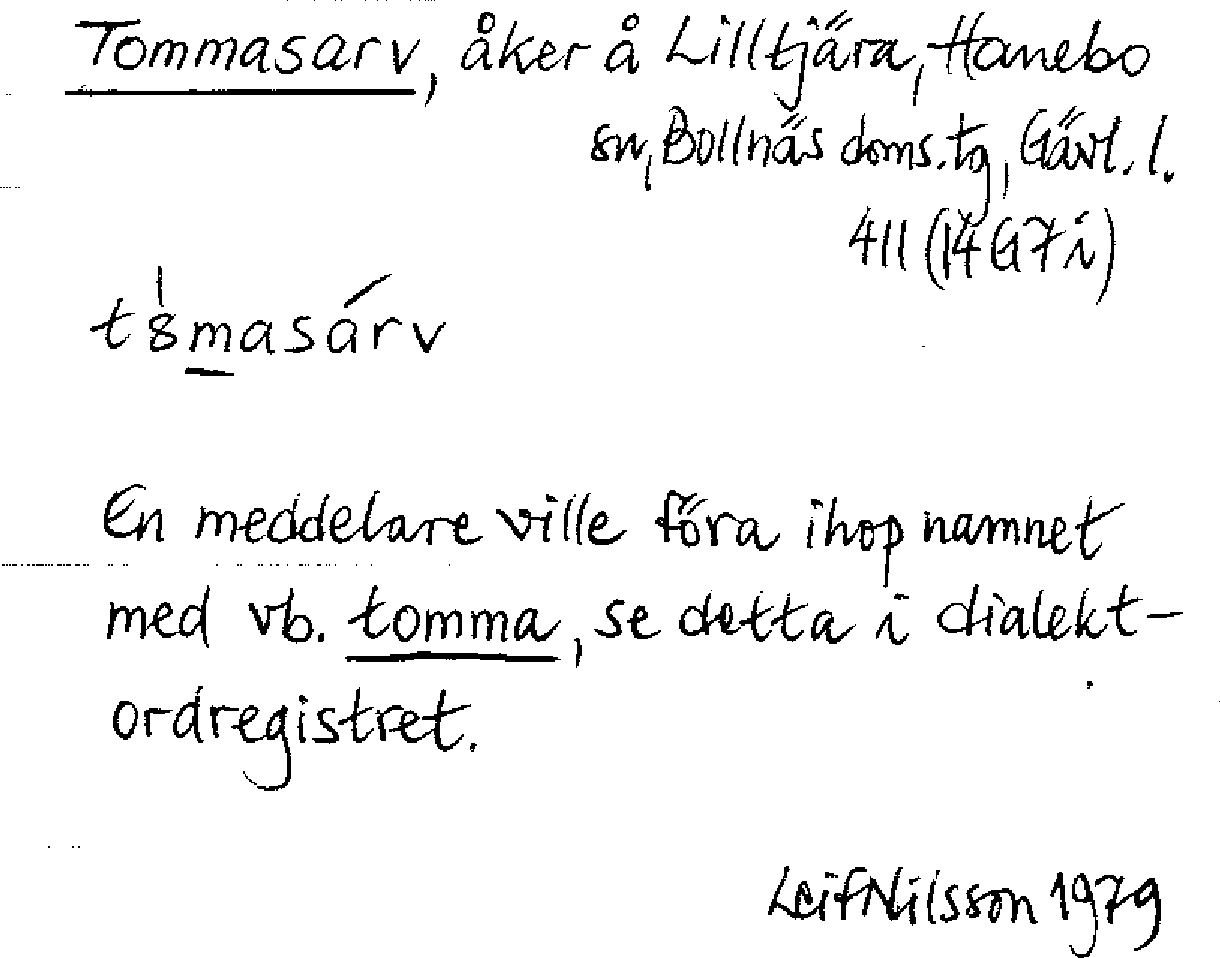 Tommasarv, åker å Lilltjära, Hanebo
sn, Bollnäs doms.tg, Gävl. l.
411 (14G7i)
t8masárv
En meddelare ville föra ihop namnet
med vb. tomma, se detta i dialekt-
ordregistret.
Leif Nilsson 1979